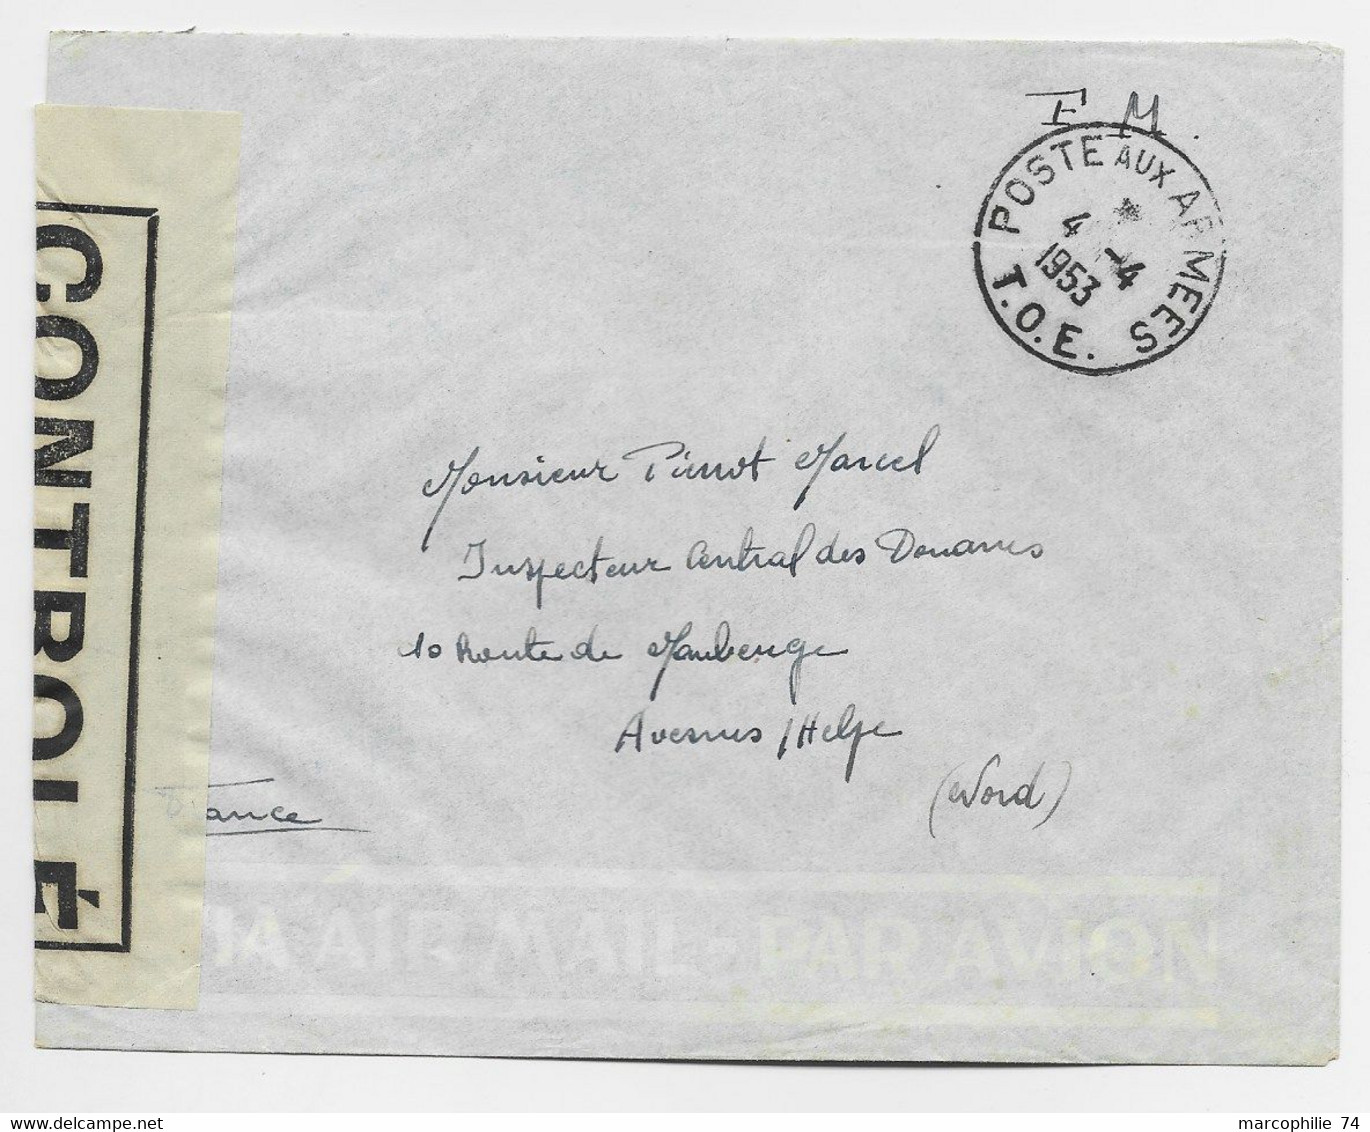 F. M.
POSTE AUX ARMEES
4 -4
1953
T.O.E.
CONTROLÉ
Monsieur Pierrot Marcel
Inspecteur Central des Douanes
10 Route de Maubeuge
Avesnes / Helpe
(Nord)
France
VIA AIR MAIL - PAR AVION
marcophile 74